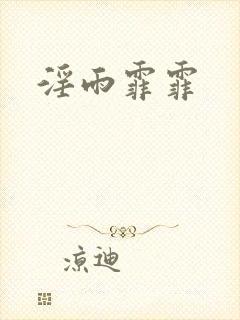 淫雨霏霏
凉迪